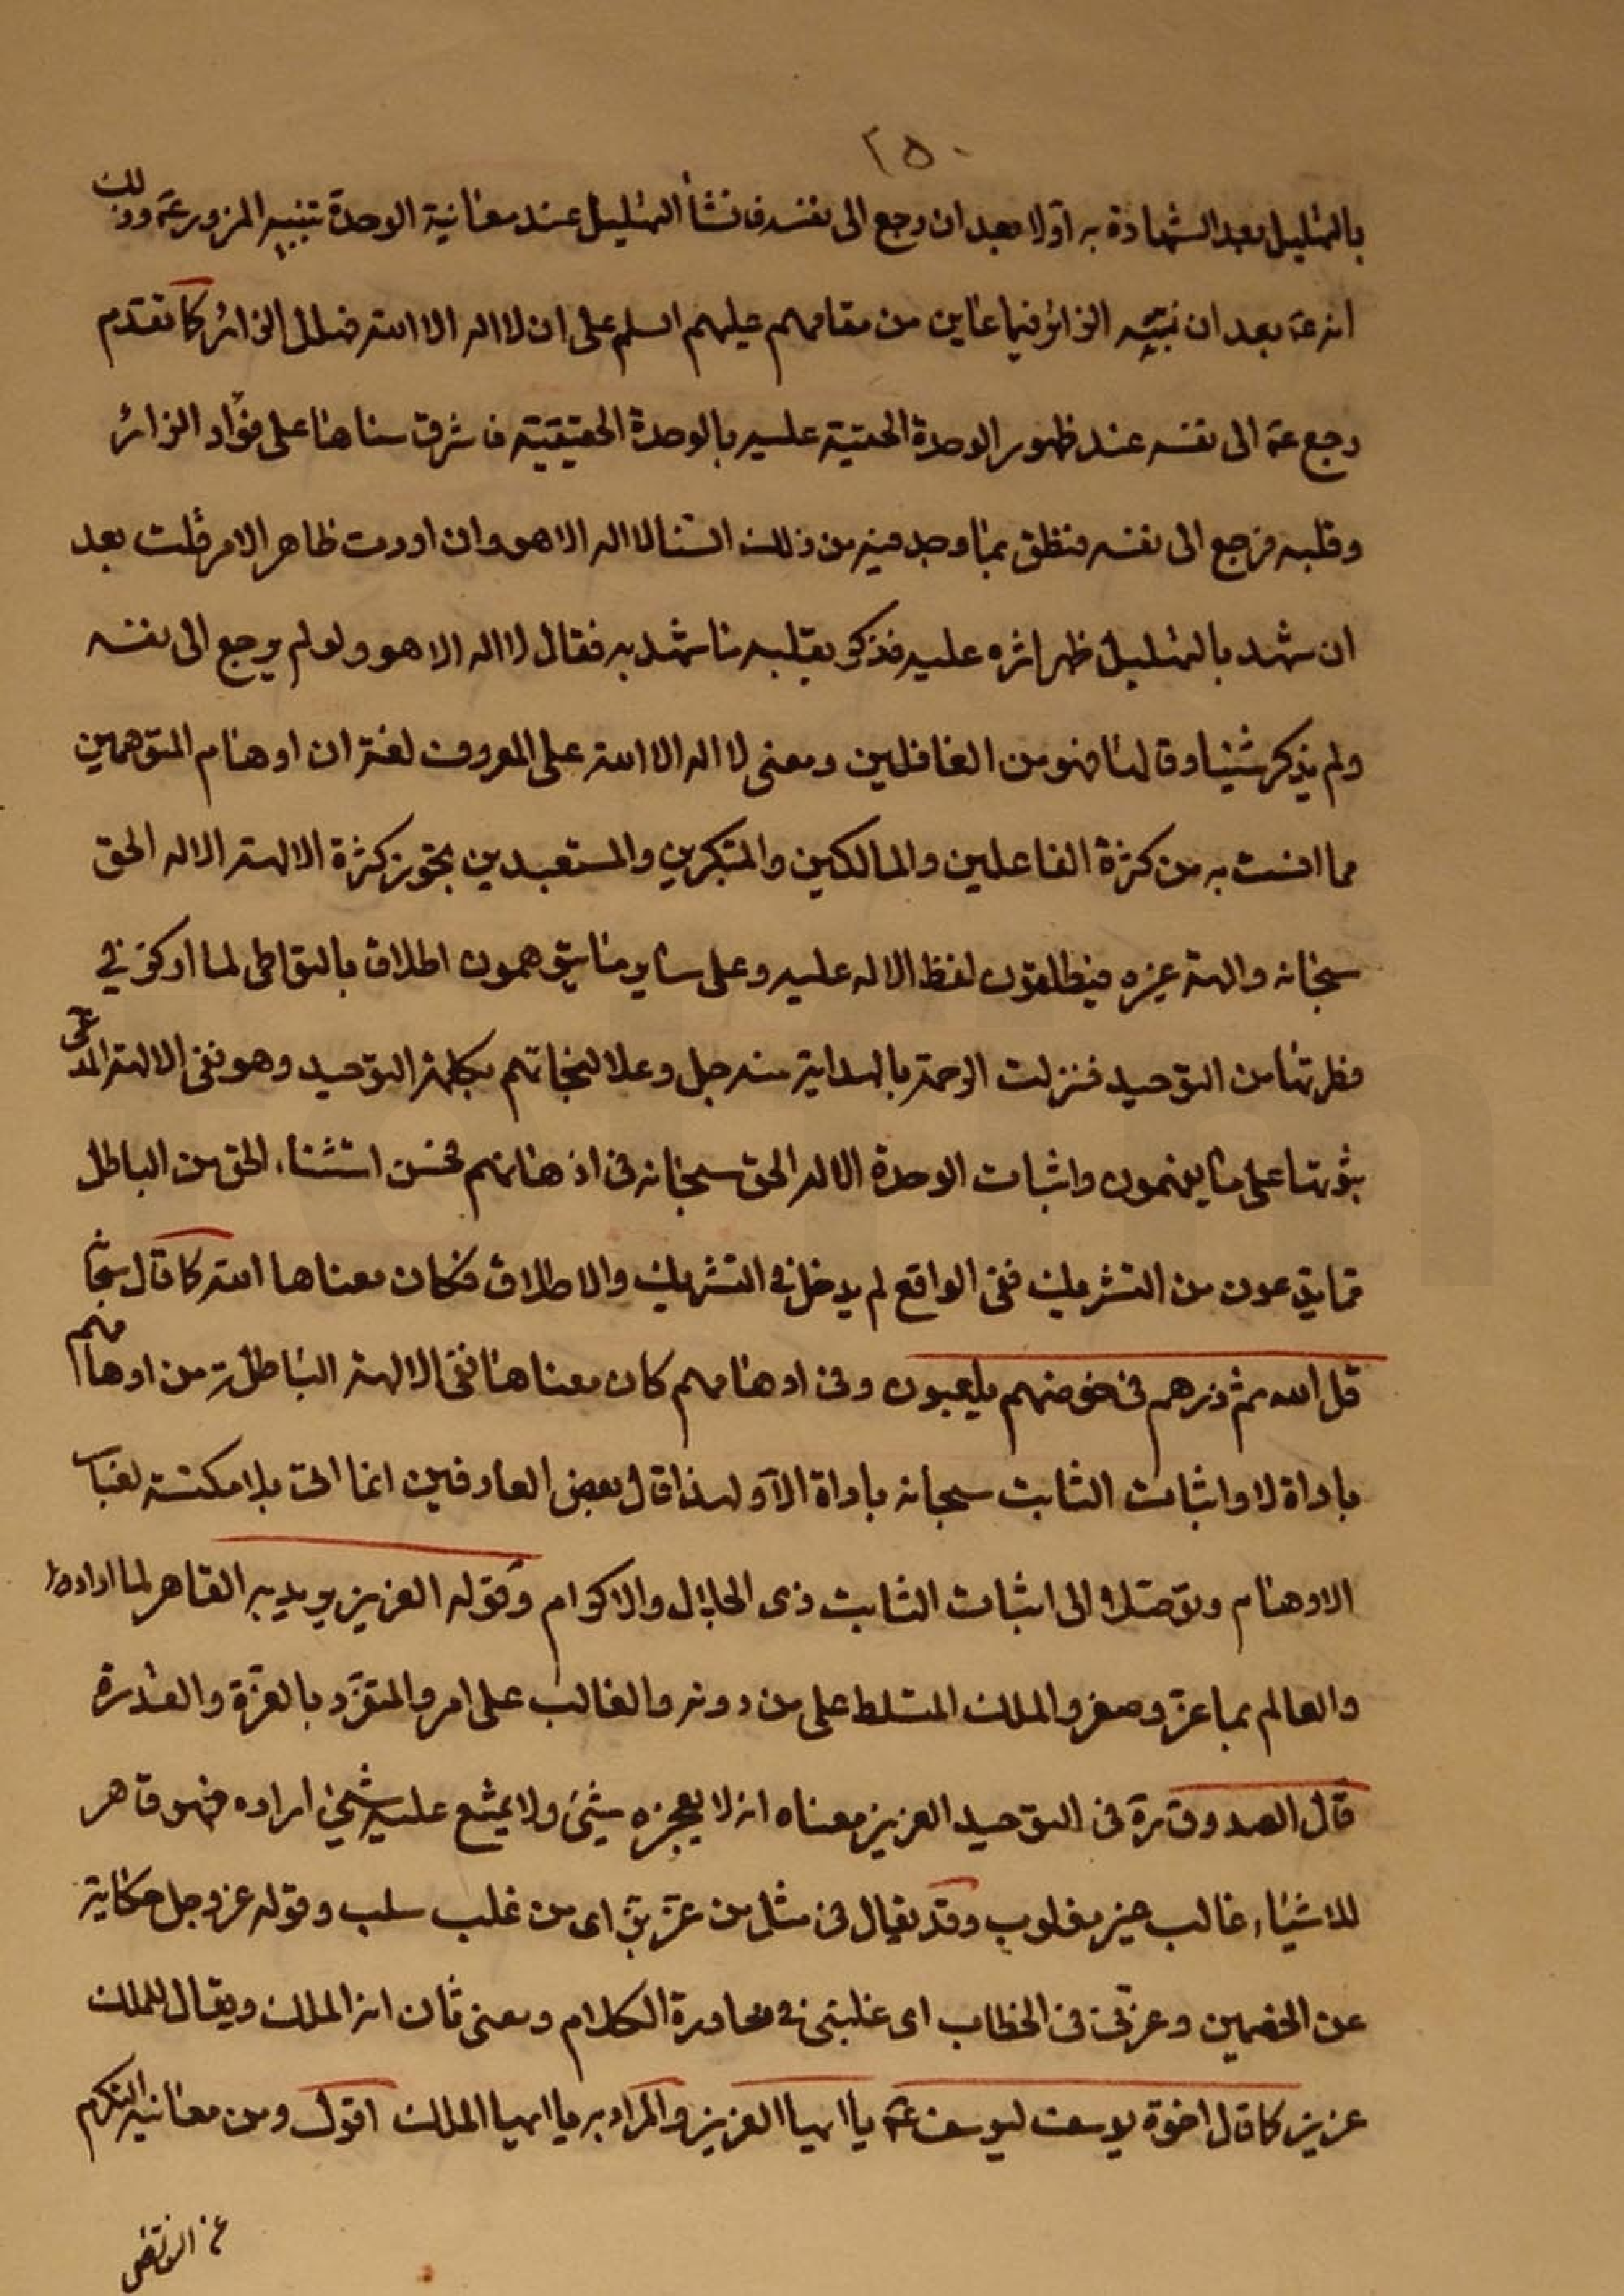 ٢٥٠
بالتهليل بعد الشهادة به اولا بعد ان رجع الى نفسه فانشأ التهليل عند معانية الوحدة بتنبيه المزور ع وذلك
انه ع بعد ان نبّه الزائر فيما عاين من مقامهم عليهم السلم على ان لا اله الا الله فهلل الزائر كا تقدم
رجع ع الى نفسه عند ظهور الوحدة الحقية عليه بالوحدة الحقيقية فاشرق سناها على فؤاد الزائر
وقلبه فرجع الى نفسه فنطق بما وجد فيه من ذلك السنا لا اله الا هو وان اردت ظاهر الامر قلت بعد
ان شهد بالتهليل ظهر اثره عليه فذكر بقلبه ما شهد به فقال لا اله الا هو ولو لم يرجع الى نفسه
ولم يذكر شيئا وقالها فهو من الغافلين ومعنى لا اله الا الله على المعروف لغة ان اوهام المتوهمين
مما انست به من كثرة الفاعلين والمالكين والمتكبرين والمستعبدين تجوز كثرة الالهة الاله الحق
سبحانه والهة غيره فيطلقون لفظ الاله عليه وعلى ساير ما يتوهمون اطلاق بالتواطى لما اركز في
فطرتها من التوحيد فنزلت الرحمة بالهداية منه جل وعلا لنجاتهم بكلمة التوحيد وهو نفى الالهة المدعى
ثبوتها على ما يفهمون واثبات الوحدة الاله الحق سبحانه في اذهانهم فحسن استثناء الحق من الباطل
مما يدعون من التشريك ففى الواقع لم يدخل في التشريك والاطلاق فكان معناها الله كا قال سبحا
قل الله ثم ذرهم في خوضهم يلعبون وفى اوهامهم كان معناها نفى الالهة الباطلة من اوهامهم
باداة لا واثبات الثابت سبحانه باداة الّا ولهذا قال بعض العارفين انما الّا بلا مكنسة لغبار
الاوهام وتوصلا الى اثبات الثابت ذى الجلال والاكرام وقوله العزيز يريد به القاهر لما اراده
والعالم بما عزّ وصغر والملك المتسلط على من دونه والغالب على امر والمتفرّد بالعزّة والقدرة
قال الصدوق ره في التوحيد العزيز معناه انه لا يعجزه شيئ ولا يمتنع عليه شيئ اراده فهو قاهر
للاشياء غالب غير مغلوب وقد يقال في مثل من عزّ بزّ اى من غلب سلب وقوله عز وجل حكاية
عن الخصمين وعزنى في الخطاب اى غلبنى في محاورة الكلام ومعنى ثان انه الملك ويقال للملك
عزيز كا قال اخوة يوسف ليوسف ع يا ايها العزيز والمراد به يا ايها الملك اقول ومن معانيه الكرم